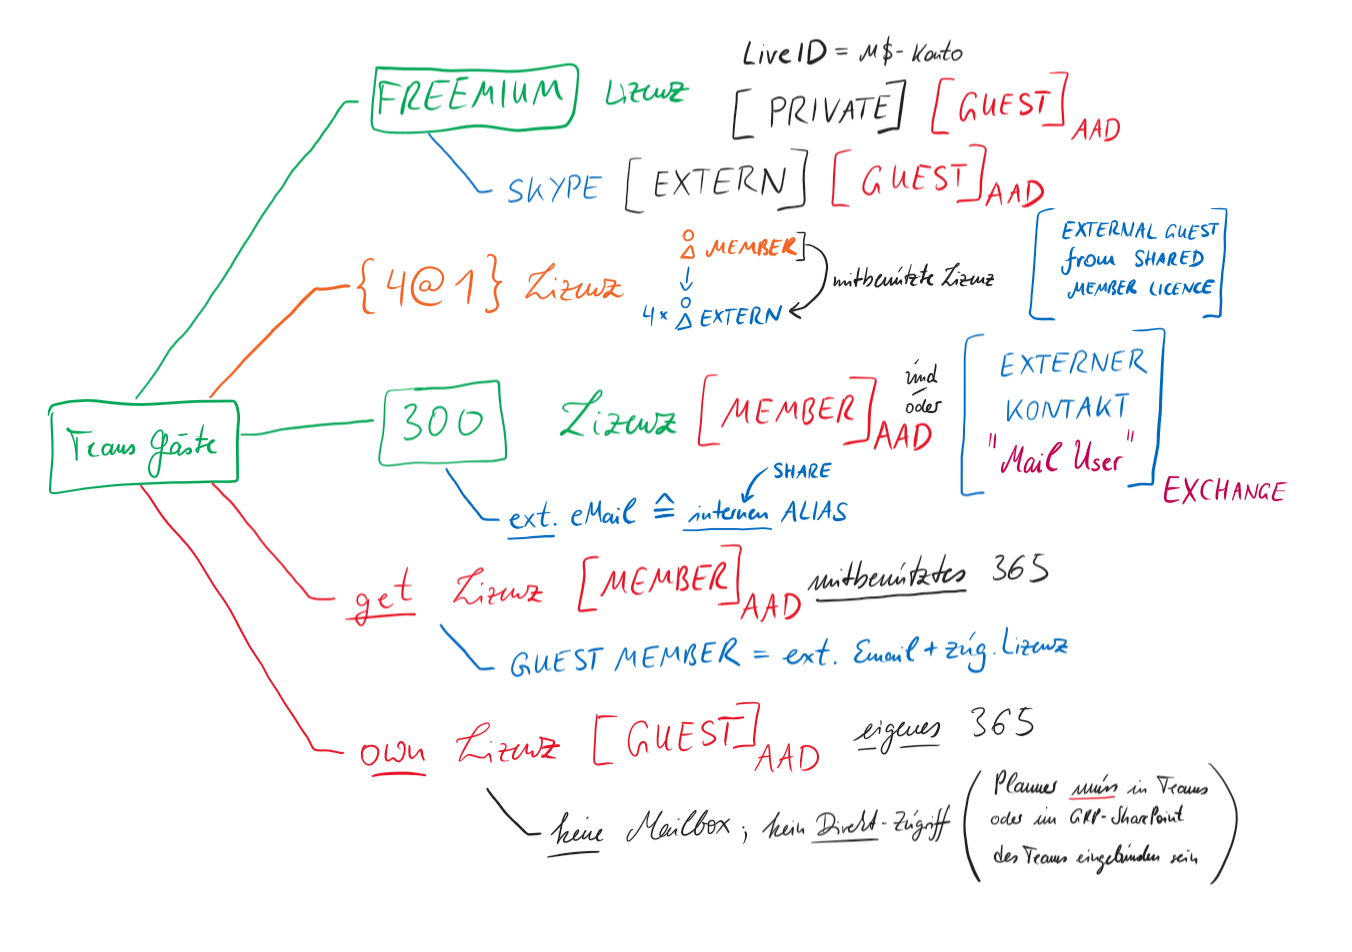 LiveID = M$-Konto
FREEMIUM Lizenz [PRIVATE] [GUEST] AAD
SKYPE [EXTERN] [GUEST] AAD
{4@1} Lizenz
MEMBER]
mitbenützte Lizenz
4x EXTERN
[EXTERNAL GUEST
from SHARED
MEMBER LICENCE]
Teams Gäste
300 Lizenz [MEMBER] AAD
und
oder
[EXTERNER
KONTAKT
"Mail User"] EXCHANGE
SHARE
ext. eMail ≙ internen ALIAS
get Lizenz [MEMBER] AAD mitbenütztes 365
GUEST MEMBER = ext. Email + zug. Lizenz
own Lizenz [GUEST] AAD eigenes 365
keine Mailbox; kein Direkt-Zugriff
(Planner muss in Teams
oder im GRP-SharePoint
des Teams eingebunden sein)